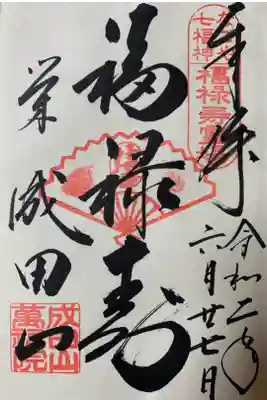 奉拝
令和二年
六月廿七日
七福神
福禄寿
福禄寿
栄 成田山
成田山